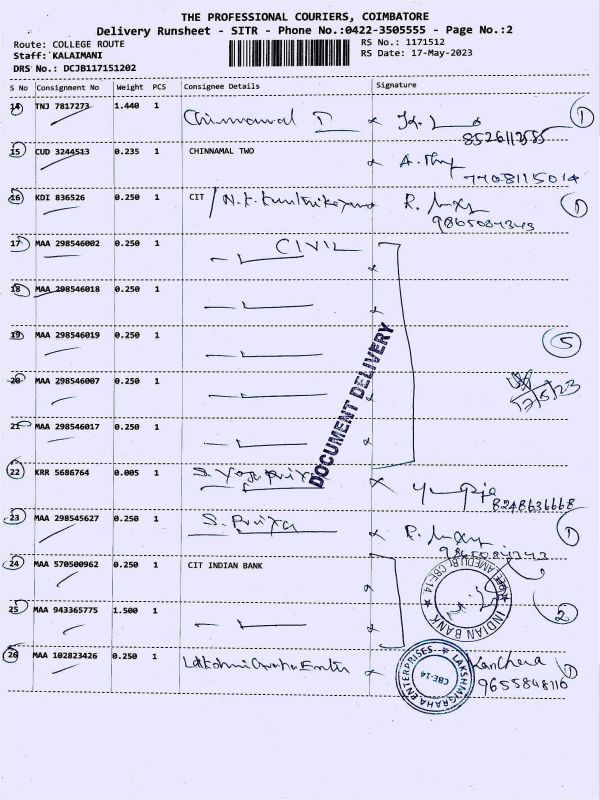 THE PROFESSIONAL COURIERS, COIMBATORE
Delivery Runsheet - SITR - Phone No.:0422-3505555 - Page No.:2
Route: COLLEGE ROUTE RS No.: 1171512
Staff: KALAIMANI RS Date: 17-May-2023
DRS No.: DCJB117151202
S No Consignment No Weight PCS Consignee Details Signature
14 TNJ 7817273 1.440 1 Chinnamal I 1
15 CUD 3244513 0.235 1 CHINNAMAL TWO
7708115014
16 KDI 836526 0.250 1 CIT 1
9865084343
17 MAA 298546002 0.250 1 CIVIL
18 MAA 298546018 0.250 1
19 MAA 298546019 0.250 1 5
20 MAA 298546007 0.250 1 17/5/23
21 MAA 298546017 0.250 1
DOCUMENT DELIVERY
22 KRR 5686764 0.005 1 S. Yogapriya
8248636668
23 MAA 298545627 0.250 1 S. Priya 1
9865084343
24 MAA 570500962 0.250 1 CIT INDIAN BANK
INDIAN BANK CBE-14
25 MAA 943365775 1.500 1 2
26 MAA 102823426 0.250 1 Kanchana 1
9655848116
LAKSHMIGRAHA ENTERPRISES CBE-14